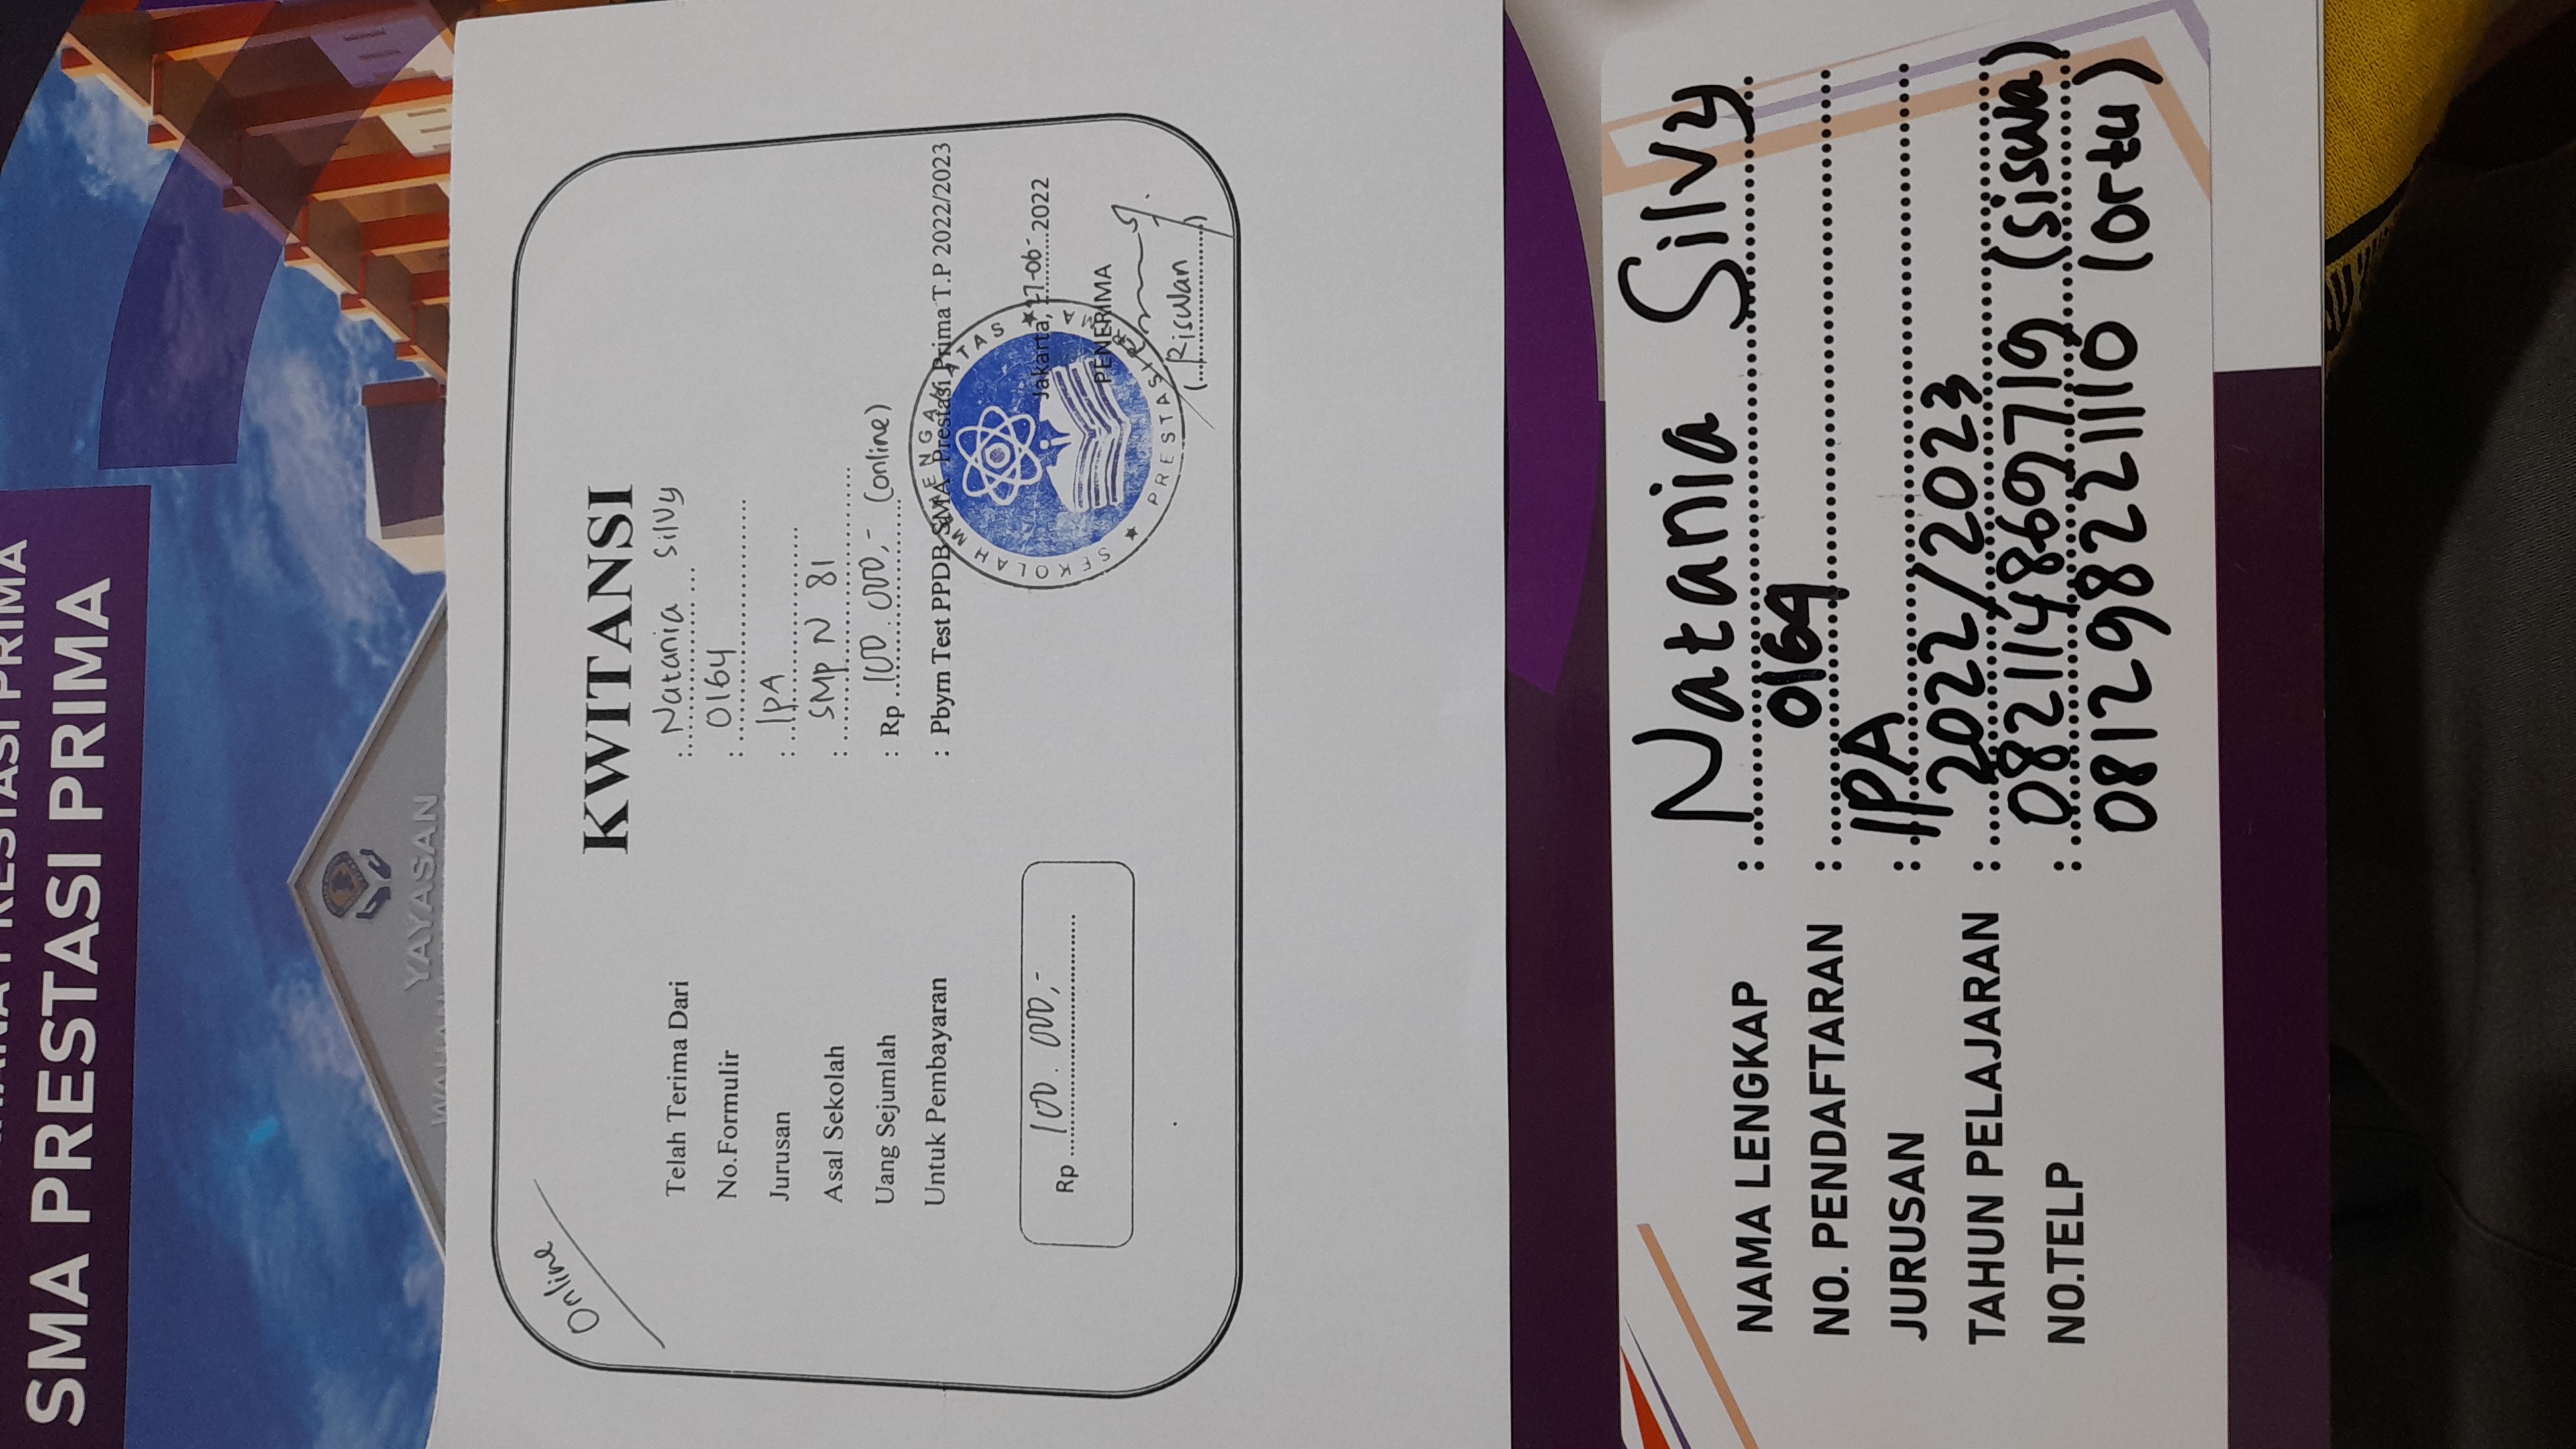 SMA PRESTASI PRIMA
YAYASAN
Online
KWITANSI
Telah Terima Dari : Natania Silvy
No.Formulir : 0164
Jurusan : IPA
Asal Sekolah : SMP N 81
Uang Sejumlah : Rp 100.000,- (online)
Untuk Pembayaran : Pbym Test PPDB SMA Prestasi Prima T.P 2022/2023
Jakarta, 27-06-2022
PENERIMA
Rp 100.000,-
(Riswan)
SEKOLAH MENENGAH ATAS
PRESTASI PRIMA
NAMA LENGKAP : Natania Silvy
NO. PENDAFTARAN : 0164
JURUSAN : IPA
TAHUN PELAJARAN : 2022/2023
NO.TELP : 082114869719 (siswa)
081298221110 (ortu)